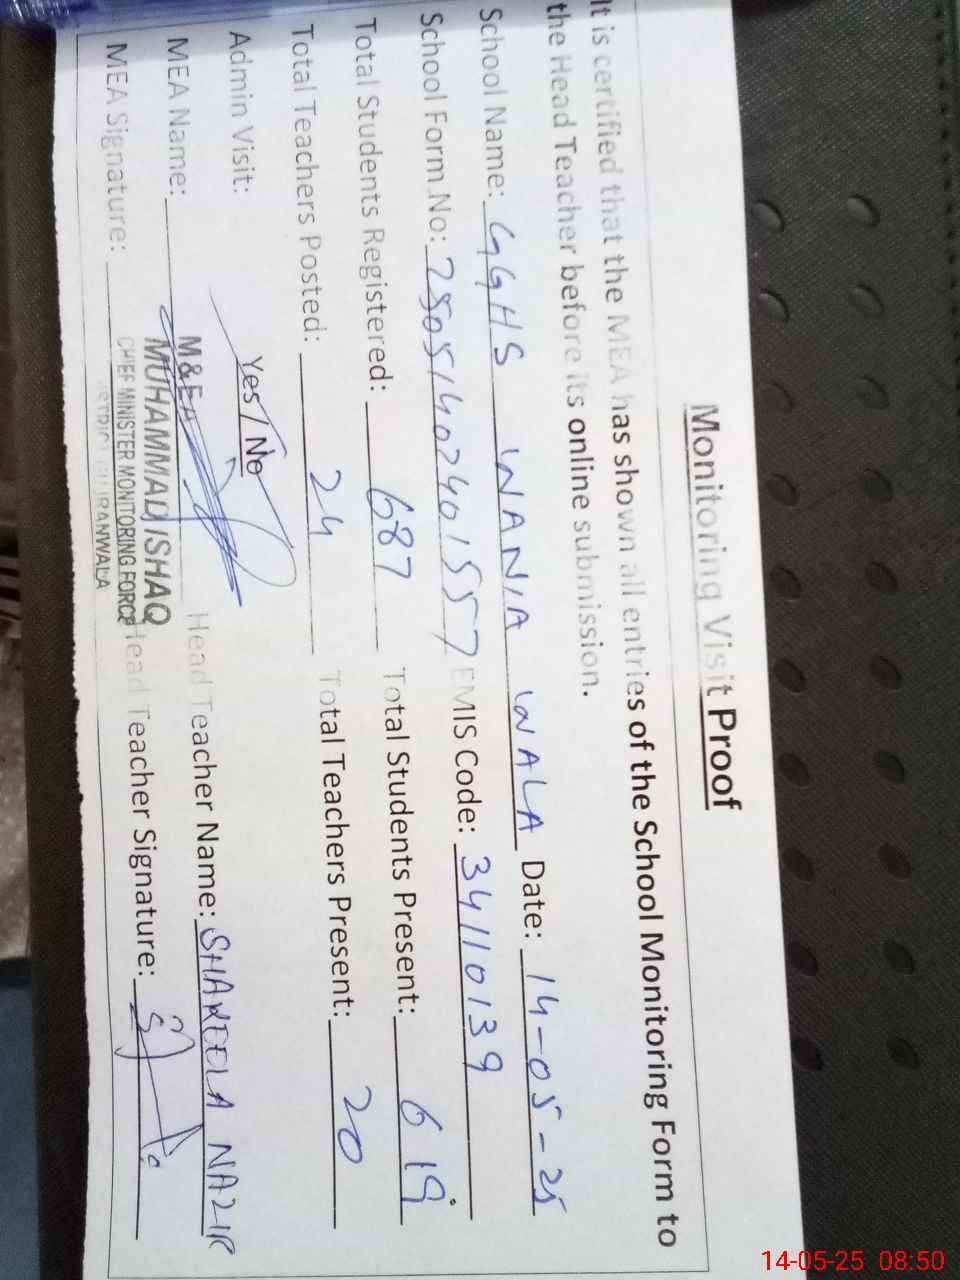 Monitoring Visit Proof
It is certified that the MEA has shown all entries of the School Monitoring Form to
the Head Teacher before its online submission.
School Name: GGHS WANIA WALA Date: 14-05-25
School Form No: 2505140240157 EMIS Code: 34110139
Total Students Registered: 687 Total Students Present: 619
Total Teachers Posted: 24 Total Teachers Present: 20
Admin Visit: Yes / No
MEA Name: Head Teacher Name: SHAKEELA NAZIR
MEA Signature: Head Teacher Signature:
MUHAMMAD ISHAQ
CHIEF MINISTER MONITORING FORCE
14-05-25 08:50